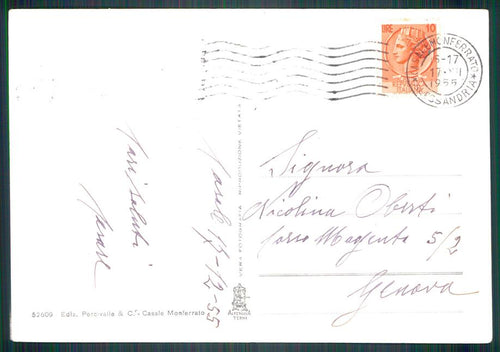 LIRE 10
MONFERRATO
15-17
1955
ALESSANDRIA
Cari Saluti
Casale 17-12-55
VERA FOTOGRAFIA RIPRODUZIONE VIETATA
Signora
Nicolina Oberti
Corso Magenta 5/2
Genova
52609 Ediz. Percivalle & C.º - Casale Monferrato